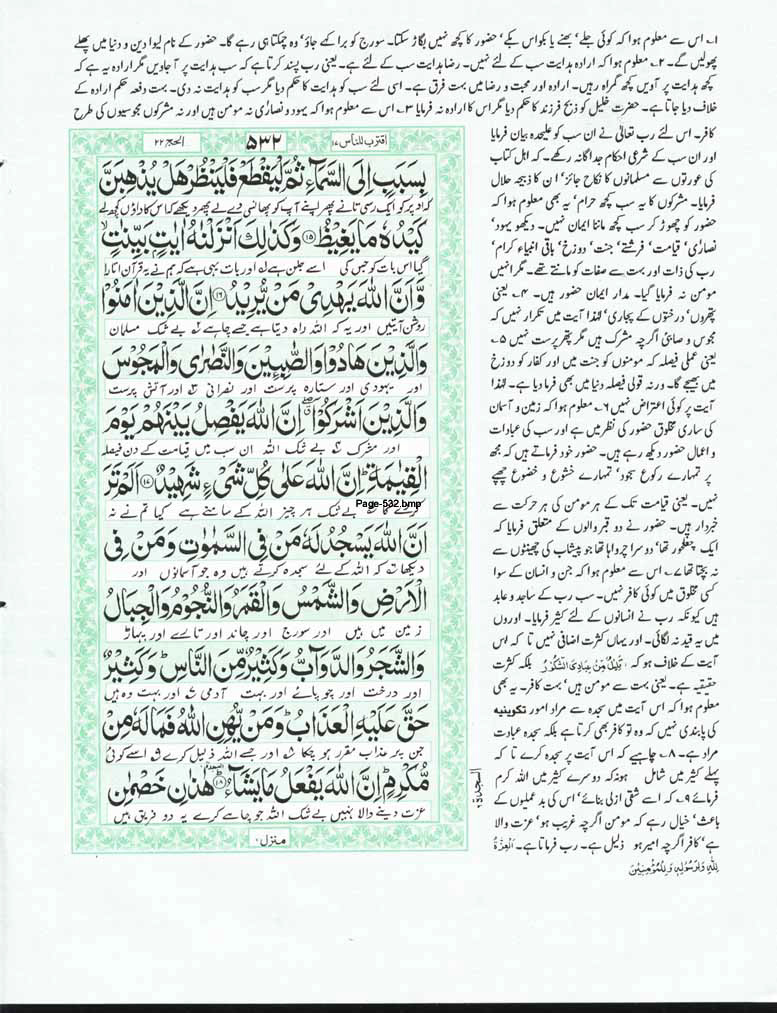 ۱۔ اس سے معلوم ہوا کہ کوئی جلے' بھنے یا بکواس بکے' حضور کا کچھ نہیں بگاڑ سکتا۔ سورج کو برا کہے جاؤ' وہ چمکتا ہی رہے گا۔ حضور کے نام لیوا دین و دنیا میں پھلے
پھولیں گے۔ ۲۔ معلوم ہوا کہ ارادہ ہدایت سب کے لئے نہیں۔ رضا ہدایت سب کے لئے ہے۔ یعنی رب پسند کرتا ہے کہ سب ہدایت پر آ جاویں مگر ارادہ یہ ہے کہ
کچھ ہدایت پر آویں کچھ گمراہ رہیں۔ ارادہ اور محبت و رضا میں بہت فرق ہے۔ اسی لئے سب کو ہدایت کا حکم دیا مگر سب کو ہدایت نہ دی۔ بہت وقعہ حکم ارادہ کے
خلاف دیا جاتا ہے۔ حضرت خلیل کو ذبح فرزند کا حکم دیا مگر اس کا ارادہ نہ فرمایا ۳۔ اس سے معلوم ہوا کہ یہود و نصاریٰ نہ مومن ہیں اور نہ مشرکوں مجوسیوں کی طرح
کافر۔ اس لئے رب تعالیٰ نے ان سب کو علیحدہ بیان فرمایا
اور ان سب کے شرعی احکام جداگانہ رکھے۔ کہ اہل کتاب
کی عورتوں سے مسلمانوں کا نکاح جائز' ان کا ذبیحہ حلال
فرمایا۔ مشرکوں کا یہ سب کچھ حرام' یہ بھی معلوم ہوا کہ
حضور کو چھوڑ کر سب کچھ ماننا ایمان نہیں۔ دیکھو یہود'
نصاریٰ' قیامت' فرشتے' جنت' دوزخ' باقی انبیاء کرام'
رب کی ذات اور بہت سے صفات کو مانتے تھے۔ مگر انہیں
مومن نہ فرمایا گیا۔ مدار ایمان حضور ہیں۔ ۴۔ یعنی
پتھروں' درختوں کے پجاری' لہٰذا آیت میں تکرار نہیں کہ
مجوس و صابئی اگرچہ مشرک ہیں مگر پتھر پرست نہیں ۵۔
یعنی عملی فیصلہ کہ مومنوں کو جنت میں اور کفار کو دوزخ
میں بھیجے گا۔ ورنہ قولی فیصلہ دنیا میں بھی فرما دیا ہے۔ لہٰذا
آیت پر کوئی اعتراض نہیں ۶۔ معلوم ہوا کہ زمین و آسمان
کی ساری مخلوق حضور کی نظر میں ہے اور سب کی عبادات
و اعمال حضور دیکھ رہے ہیں۔ حضور خود فرماتے ہیں کہ مجھ
پر تمہارے رکوع سجود' تمہارے خشوع و خضوع چھپے
نہیں۔ یعنی قیامت تک کے ہر مومن کی ہر حرکت سے
خبردار ہیں۔ حضور نے دو قبر والوں کے متعلق فرمایا کہ
ایک چغلخور تھا' دوسرا چرواہا تھا جو پیشاب کی چھینٹوں سے
نہ بچتا تھا ۷۔ اس سے معلوم ہوا کہ جن و انسان کے سوا
کسی مخلوق میں کوئی کافر نہیں۔ سب رب کے ساجد و عابد
ہیں کیونکہ رب نے انسانوں کے لئے کثیر فرمایا۔ اوروں
میں یہ قید نہ لگائی۔ اور یہاں کثرت اضافی نہیں تا کہ اس
آیت کے خلاف ہو کہ قَلِيْلٌ مِّنْ عِبَادِىَ الشَّكُوْرُ بلکہ کثرت
حقیقیہ ہے۔ یعنی بہت سے مومن ہیں' بہت کافر۔ یہ بھی
معلوم ہوا کہ اس آیت میں سجدہ سے مراد امور تکوینیہ
کی پابندی نہیں کہ وہ تو کافر بھی کرتا ہے بلکہ سجدہ عبادت
مراد ہے۔ ۸۔ چاہیے کہ اس آیت پر سجدہ کرے تا کہ
پہلے کثیر میں شامل ہونہ کہ دوسرے کثیر میں اللہ کرم
فرمائے ۹۔ کہ اسے شقی ازلی بنائے' اس کی بد عملیوں کے
باعث' خیال رہے کہ مومن اگرچہ غریب ہو' عزت والا
ہے' کافر اگرچہ امیر ہو ذلیل ہے۔ رب فرماتا ہے۔ اَلْعِزَّةُ
لِلّٰهِ وَلِرَسُوْلِهٖ وَلِلْمُؤْمِنِيْنَ
السجدة
اقترب للناس ۱۷ ۵۳۲ الحج ۲۲
بِسَبَبٍ اِلَى السَّمَآءِ ثُمَّ لْيَقْطَعْ فَلْيَنْظُرْ هَلْ يُذْهِبَنَّ
کہ اوپر کو ایک رسی تانے پھر اپنے آپ کو پھانسی دے لے پھر دیکھے کہ اس کا داؤں کچھ لے
كَيْدُهٗ مَا يَغِيْظُ ۱۵ وَكَذٰلِكَ اَنْزَلْنٰهُ اٰيٰتٍۢ بَيِّنٰتٍ ۙ
گیا اس بات کو جس کی اسے جلن ہے اور بات یہی ہے کہ ہم نے یہ قرآن اتارا
وَّاَنَّ اللّٰهَ يَهْدِىْ مَنْ يُّرِيْدُ ۱۶ اِنَّ الَّذِيْنَ اٰمَنُوْا
روشن آیتیں اور یہ کہ اللہ راہ دیتا ہے جسے چاہے بے شک مسلمان
وَالَّذِيْنَ هَادُوْا وَالصّٰبِـِٕيْنَ وَالنَّصٰرٰى وَالْمَجُوْسَ
اور یہودی اور ستارہ پرست اور نصرانی اور آتش پرست
وَالَّذِيْنَ اَشْرَكُوْۤا ۖ اِنَّ اللّٰهَ يَفْصِلُ بَيْنَهُمْ يَوْمَ
اور مشرک بے شک اللہ ان سب میں قیامت کے دن فیصلہ
الْقِيٰمَةِ ؕ اِنَّ اللّٰهَ عَلٰى كُلِّ شَىْءٍ شَهِيْدٌ ۱۷ اَلَمْ تَرَ
Page-532.bmp
بے شک ہر چیز اللہ کے سامنے ہے کیا تم نے نہ
اَنَّ اللّٰهَ يَسْجُدُ لَهٗ مَنْ فِى السَّمٰوٰتِ وَمَنْ فِى
دیکھا کہ اللہ کے لئے سجدہ کرتے ہیں وہ جو آسمانوں اور
الْاَرْضِ وَالشَّمْسُ وَالْقَمَرُ وَالنُّجُوْمُ وَالْجِبَالُ
زمین میں ہیں اور سورج اور چاند اور تارے اور پہاڑ
وَالشَّجَرُ وَالدَّوَآبُّ وَكَثِيْرٌ مِّنَ النَّاسِ ؕ وَكَثِيْرٌ
اور درخت اور چوپائے اور بہت آدمی اور بہت وہ ہیں
حَقَّ عَلَيْهِ الْعَذَابُ ؕ وَمَنْ يُّهِنِ اللّٰهُ فَمَا لَهٗ مِنْ
جن پر عذاب مقرر ہو چکا اور جسے اللہ ذلیل کرے اسے کوئی
مُّكْرِمٍ ؕ اِنَّ اللّٰهَ يَفْعَلُ مَا يَشَآءُ ۱۸ هٰذٰنِ خَصْمٰنِ
عزت دینے والا نہیں بے شک اللہ جو چاہے کرے یہ دو فریق ہیں
منزل